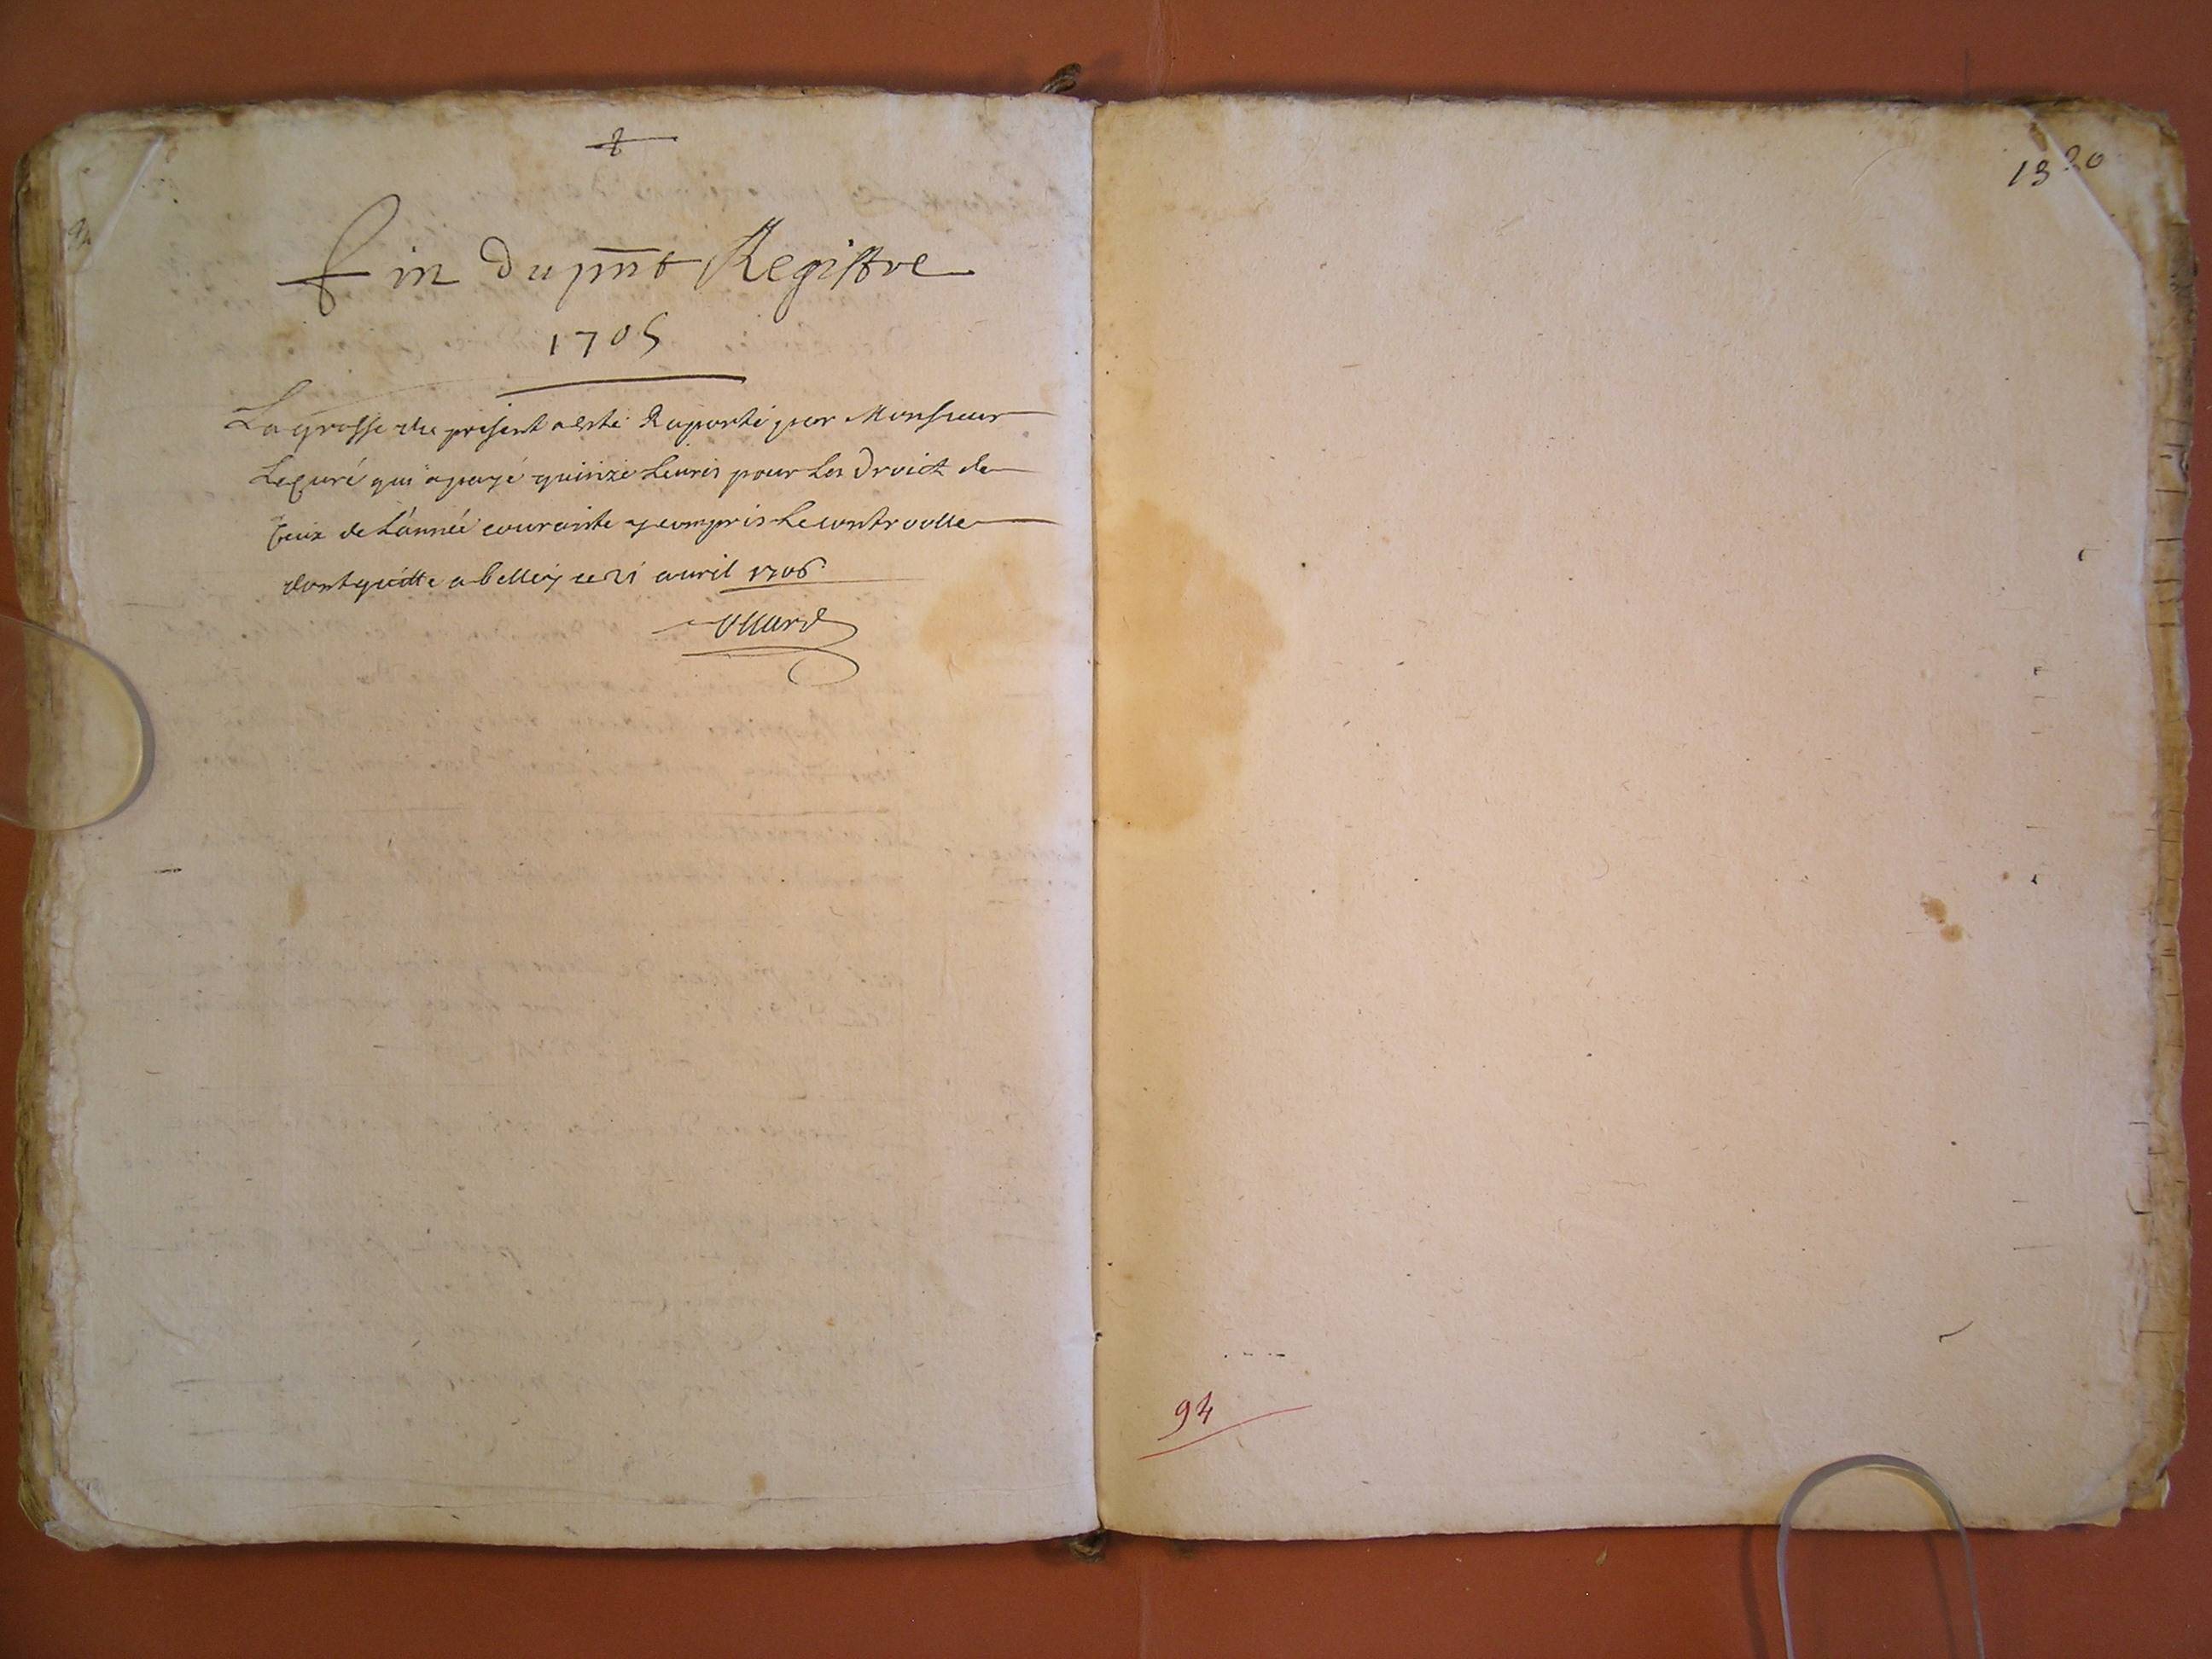 Fin du pnt Registre
1705
La grosse du present a esté Raporté par Monsieur
Le Curé qui a payé quinze Liures pour Les Droict de
Ceux de L'année courante y compris Le controolle
dont quitte a belley ce 21 auril 1706
94